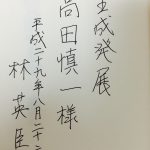 生成発展
高田慎一様
平成二十九年八月二十二
林英臣